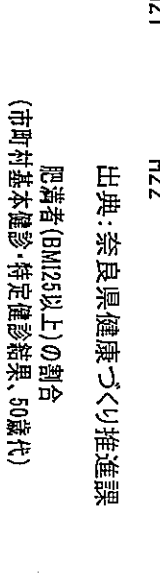 H21
H22
出典:奈良県健康づくり推進課
肥満者(BMI25以上)の割合
(市町村基本健診・特定健診結果、50歳代)